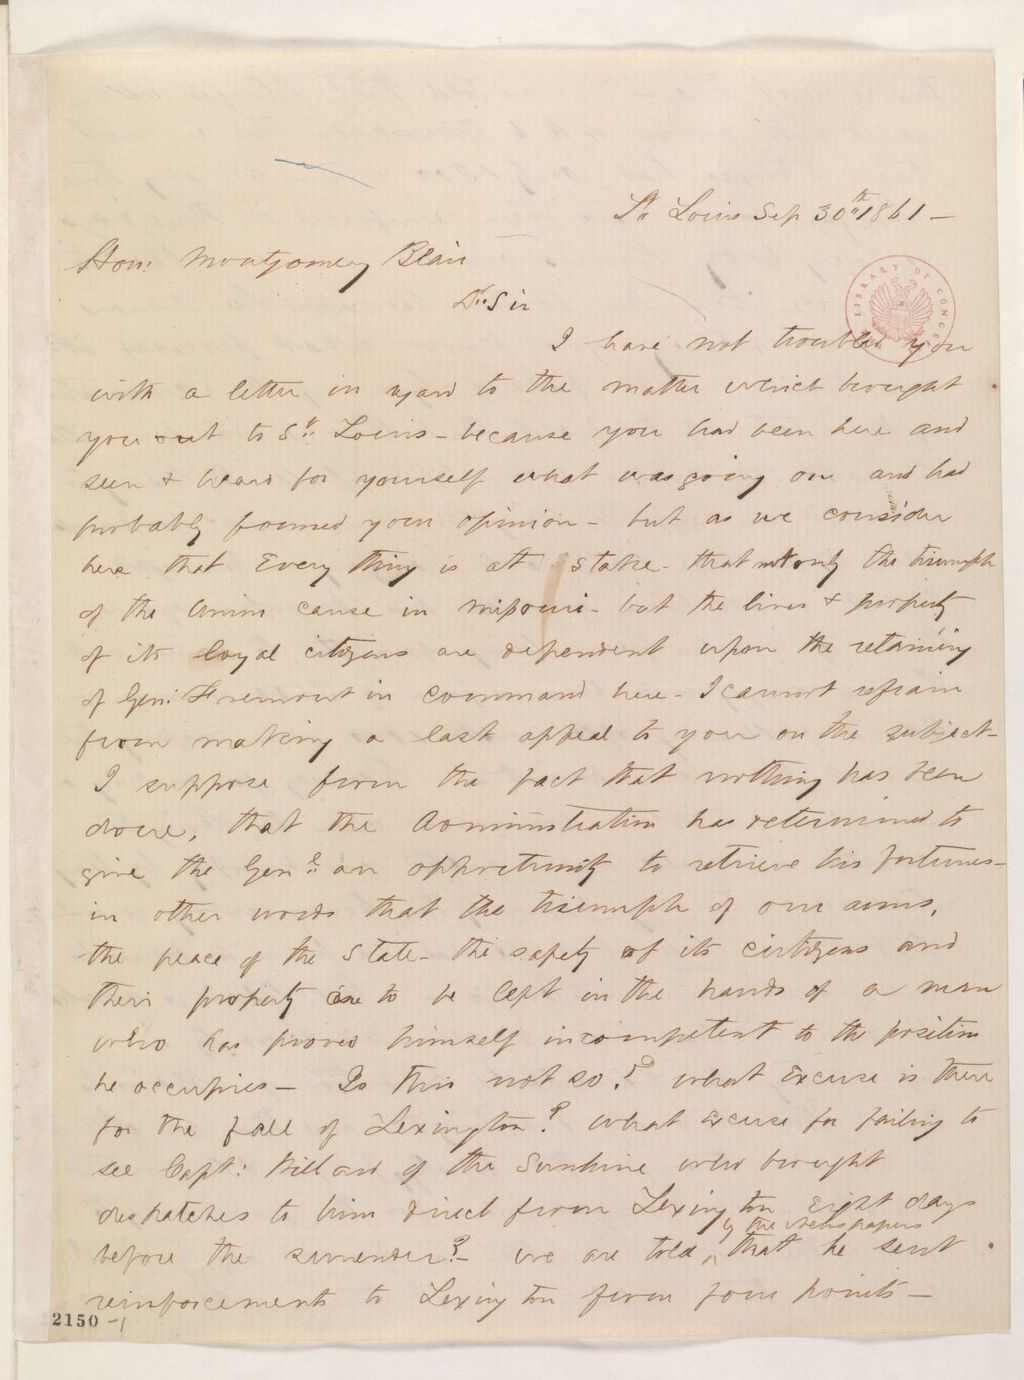 St Louis Sep 30th 1861 -
Hon: Montgomery Blair
Dr. Sir
I have not troubled you
with a letter in regard to the matter which brought
you out to St: Louis - because you had been here and
seen & heard for yourself what was going on and had
probably formed your opinion - but as we consider
here that Every thing is at stake - that not only the triumph
of the Union cause in Missouri - but the lives & property
of its loyal citizens are dependent upon the retaining
of Genl: Fremont in command here - I cannot refrain
from making a last appeal to you on the subject -
I suppose from the fact that nothing has been
done, that the Administration has determined to
give the Genl: an opportunity to retrieve his fortunes -
in other words that the triumph of our arms,
the peace of the State - the safety of its citizens and
their property are to be kept in the hands of a man
who has proved himself incompetent to the position
he occupies - Is this not so? what Excuse is there
for the fall of Lexington? What excuse for failing to
see Capt: Willard of the Sunshine who brought
despatches to him direct from Lexington Eight days
before the surrender? - we are told, by the newspapers that he sent
reinforcements to Lexington from four points -
2150 -1
LIBRARY OF CONGRESS